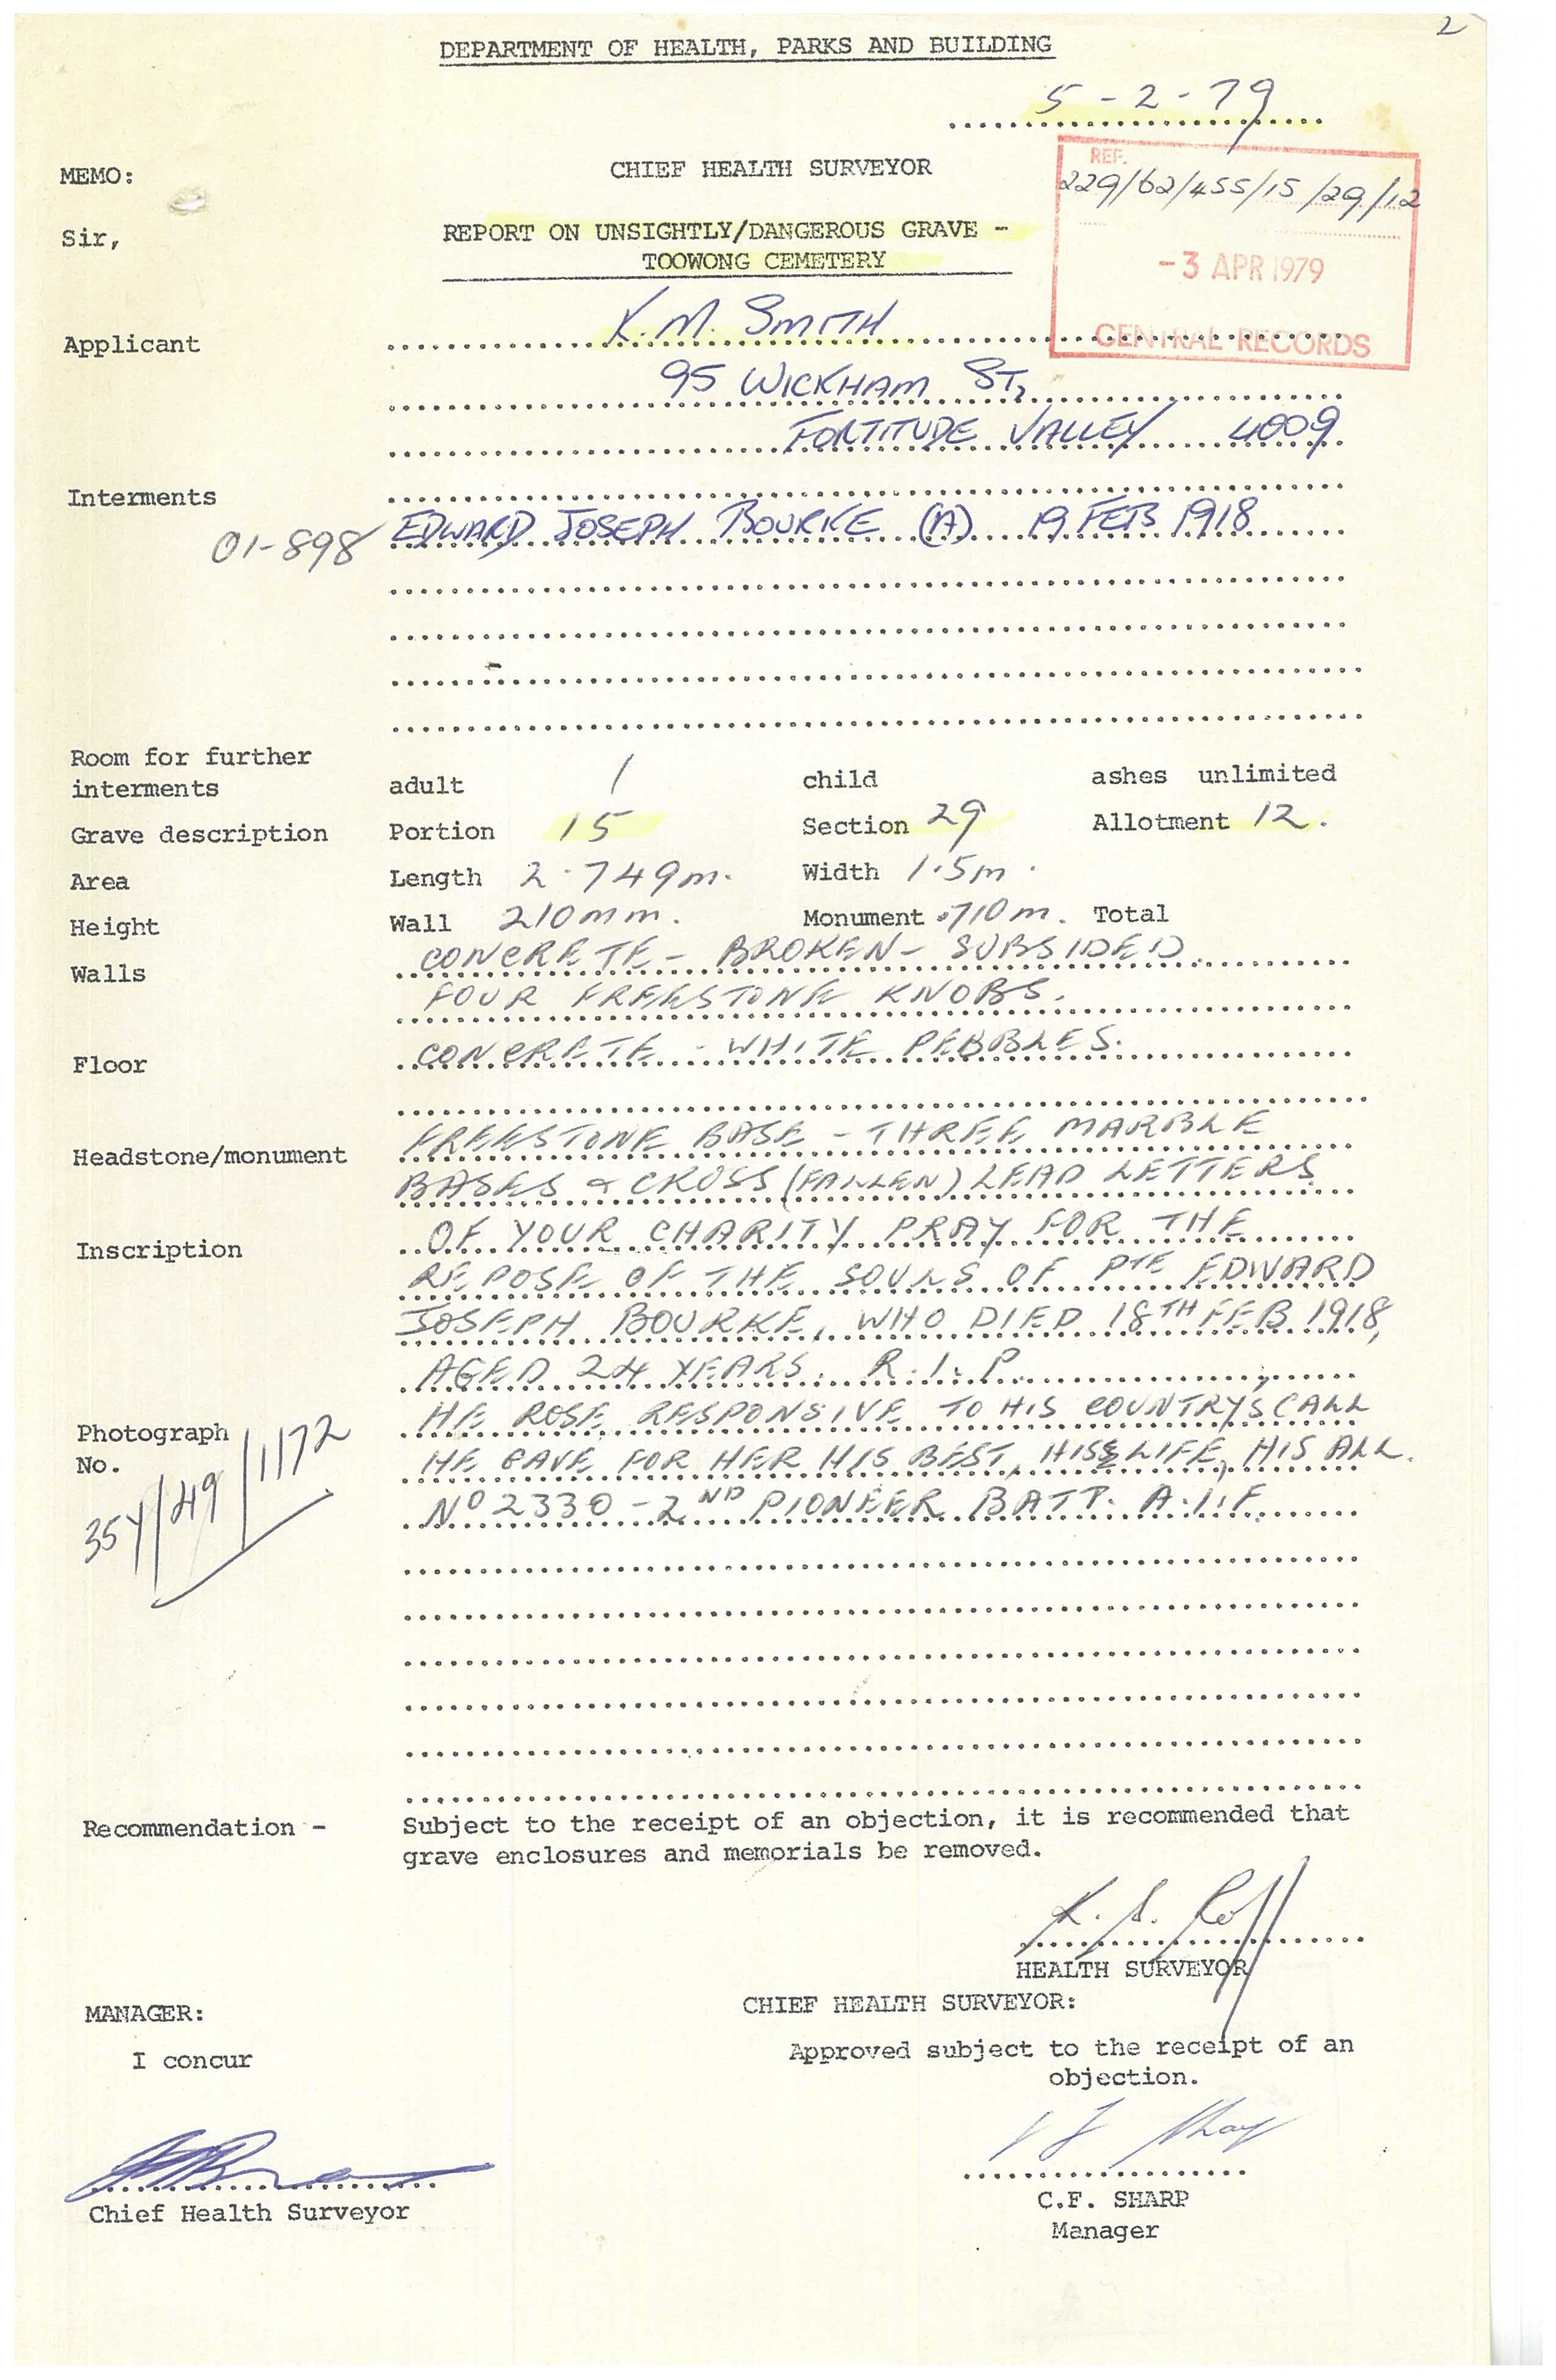 2
DEPARTMENT OF HEALTH, PARKS AND BUILDING
5-2-79
MEMO: CHIEF HEALTH SURVEYOR
REF.
229/62/455/15/29/12
Sir, REPORT ON UNSIGHTLY/DANGEROUS GRAVE -
TOOWONG CEMETERY
-3 APR 1979
CENTRAL RECORDS
Applicant K.M. SMITH
95 WICKHAM ST,
FORTITUDE VALLEY 4009
Interments
01-898 EDWARD JOSEPH BOURKE (A) 19 FEB 1918
Room for further
interments adult 1 child ashes unlimited
Grave description Portion 15 Section 29 Allotment 12.
Area Length 2.749m. Width 1.5m.
Height Wall 210mm. Monument .710m. Total
Walls CONCRETE - BROKEN - SUBSIDED.
FOUR FREESTONE KNOBS.
Floor CONCRETE - WHITE PEBBLES.
Headstone/monument FREESTONE BASE - THREE MARBLE
BASES & CROSS (FALLEN) LEAD LETTERS
Inscription OF YOUR CHARITY PRAY FOR THE
REPOSE OF THE SOULS OF PTE EDWARD
JOSEPH BOURKE, WHO DIED 18TH FEB 1918,
AGED 24 YEARS. R.I.P.
HE ROSE RESPONSIVE TO HIS COUNTRY'S CALL
HE GAVE FOR HER HIS BEST, HIS LIFE, HIS ALL.
No 2330 - 2ND PIONEER BATT. A.I.F.
Photograph
No.
/49/1172
Recommendation - Subject to the receipt of an objection, it is recommended that
grave enclosures and memorials be removed.
K. S.
HEALTH SURVEYOR
MANAGER: CHIEF HEALTH SURVEYOR:
I concur Approved subject to the receipt of an
objection.
Chief Health Surveyor
C.F. SHARP
Manager